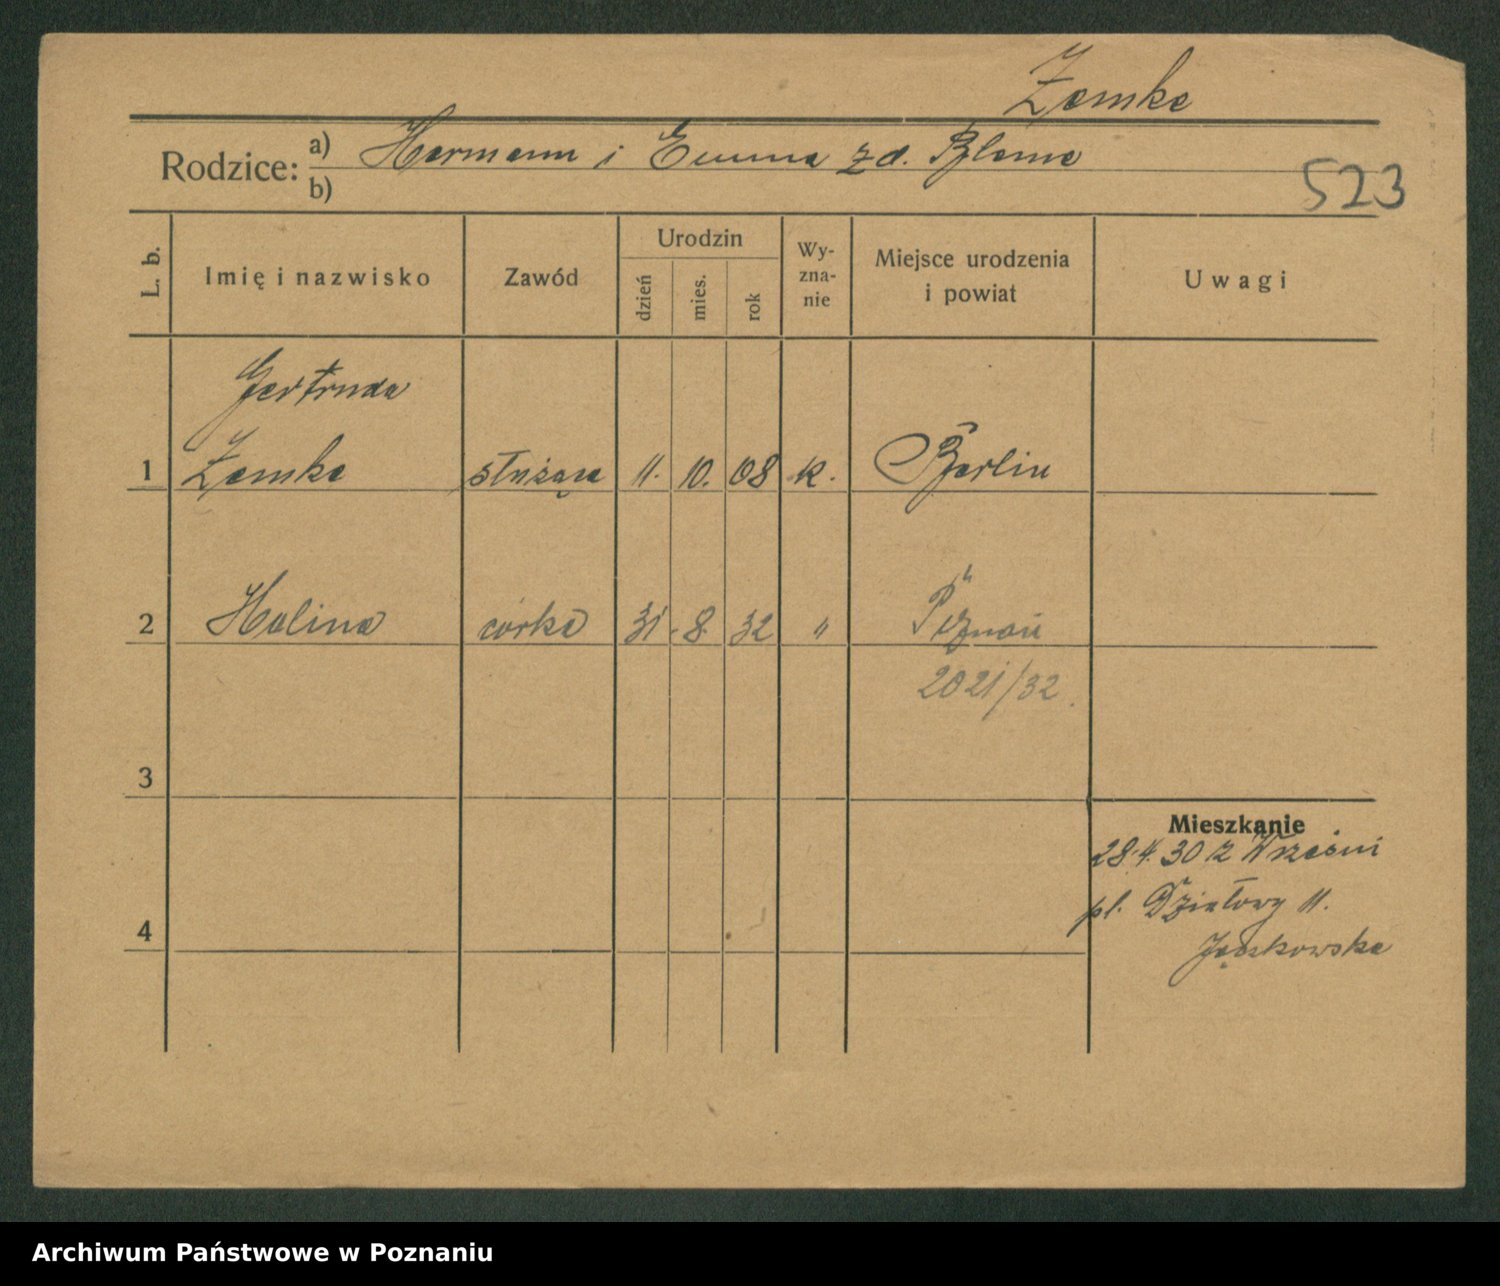 Zemke
Rodzice: a) Hermann i Emma zd. Bleme
b)
523
L. b. Imię i nazwisko Zawód Urodzin dzień mies. rok Wyznanie Miejsce urodzenia i powiat Uwagi
Gertruda
1 Zemke służąca 11. 10. 08 k. Berlin
2 Halina córka 31. 8. 32 " Poznań
2021/32
3
Mieszkanie
28.4.30 z Wrześni
pl. Działowy 11.
4
Jączkowska
Archiwum Państwowe w Poznaniu